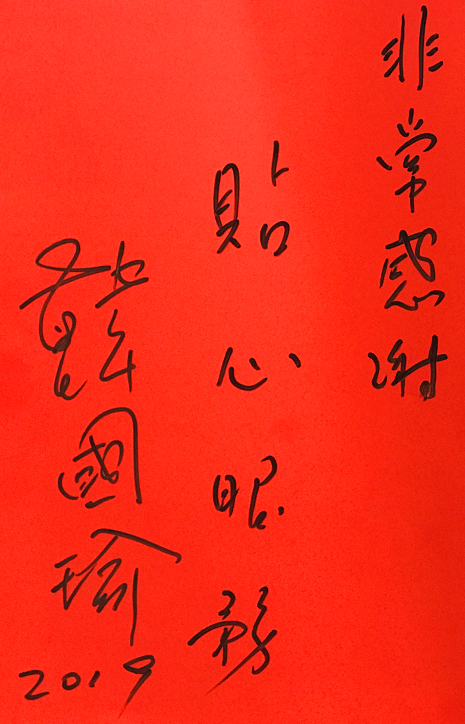 非常感謝
貼心服務
韓國瑜
2019